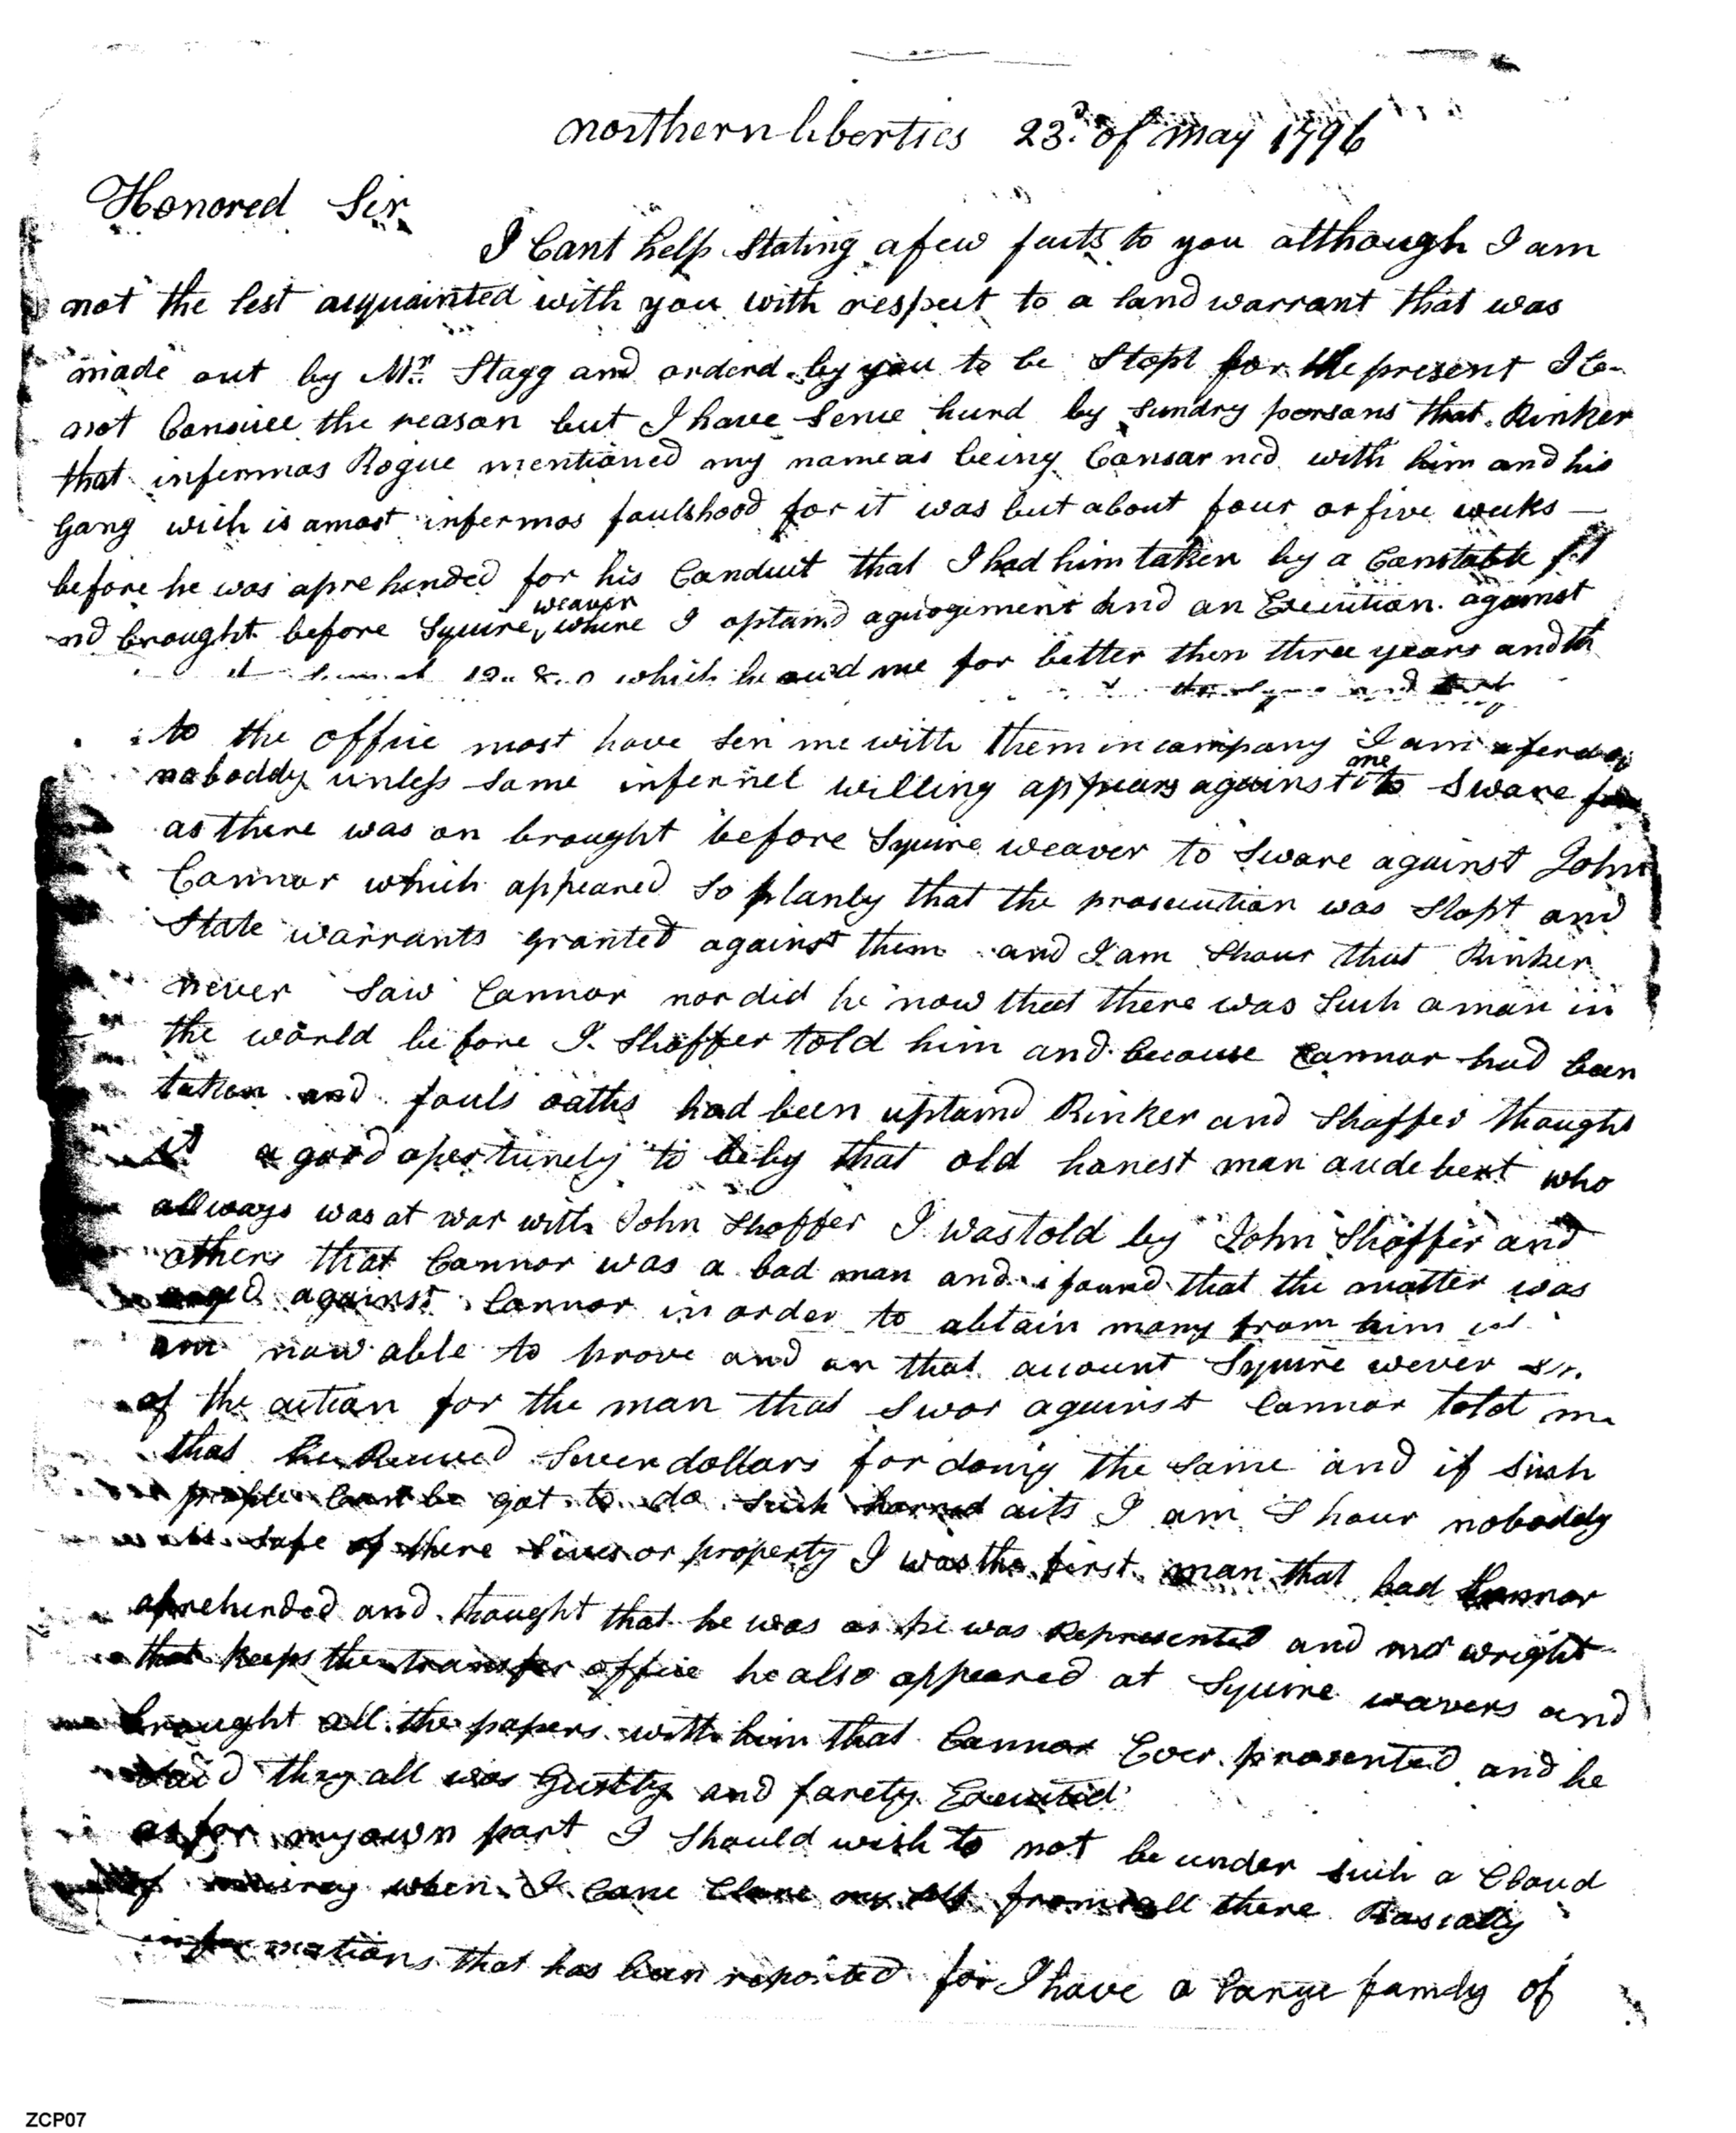 northern liberties 23d. of may 1796
Honored Sir
I Cant help Stating a few facts to you although I am
not the lest acquainted with you with respect to a land warrant that was
made out by Mr. Stagg and orderd by you to be Stopt for the present I
not Concieve the reason but I have Sence hurd by Sundry persons that Rinker
that infermas Rogue mentioned my name as being Consarned with him and his
Gang wich is a most infermos faulshood for it was but about four or five weeks —
before he was aprehended for his Conduct that I had him taken by a Constable
nd brought before Squire weaver where I optand a gudgement and an Execution against
which he owd me for better then three years and th
to the office most have Sen me with them in company I am aferd of
naboddy unless Some infernel willing appears against me to Sware
as there was on brought before Squire weaver to Sware against John
Connor which appeared So planly that the prosecution was Stopt and
State warrants granted against them and I am Shour that Rinker
never Saw Connor nor did he now that there was Such a man in
the world before J. Shaffer told him and because Connor had been
taken and fouls oaths had been uptand Rinker and Shaffer thought
it a good opertunely to by that old honest man audebert who
allways was at war with John Shaffer I was told by John Shaffer and
others that Connor was a bad man and i found that the matter was
against Connor in order to abtain mony from him
am now able to prove and on that account Squire wever
of the action for the man that Swor against Connor told me
that he Receved Seven dollars for doing the Same and if Such
people can be got to do Such horred acts I am Shour noboddy
Safe of there lives or property I was the first man that had Connor
aprehended and thought that he was as he was Represented and mr wright
that keeps the transfer office he also appeared at Squire wavers and
brought all the papers with him that Connor Ever prasented and he
Said they all was Gustly and farely Executed
as for my own part I Should wish to not be under such a Cloud
of when I Cane Clare my Self from all there Rascally
informations that has been reported for I have a Large family of
ZCP07